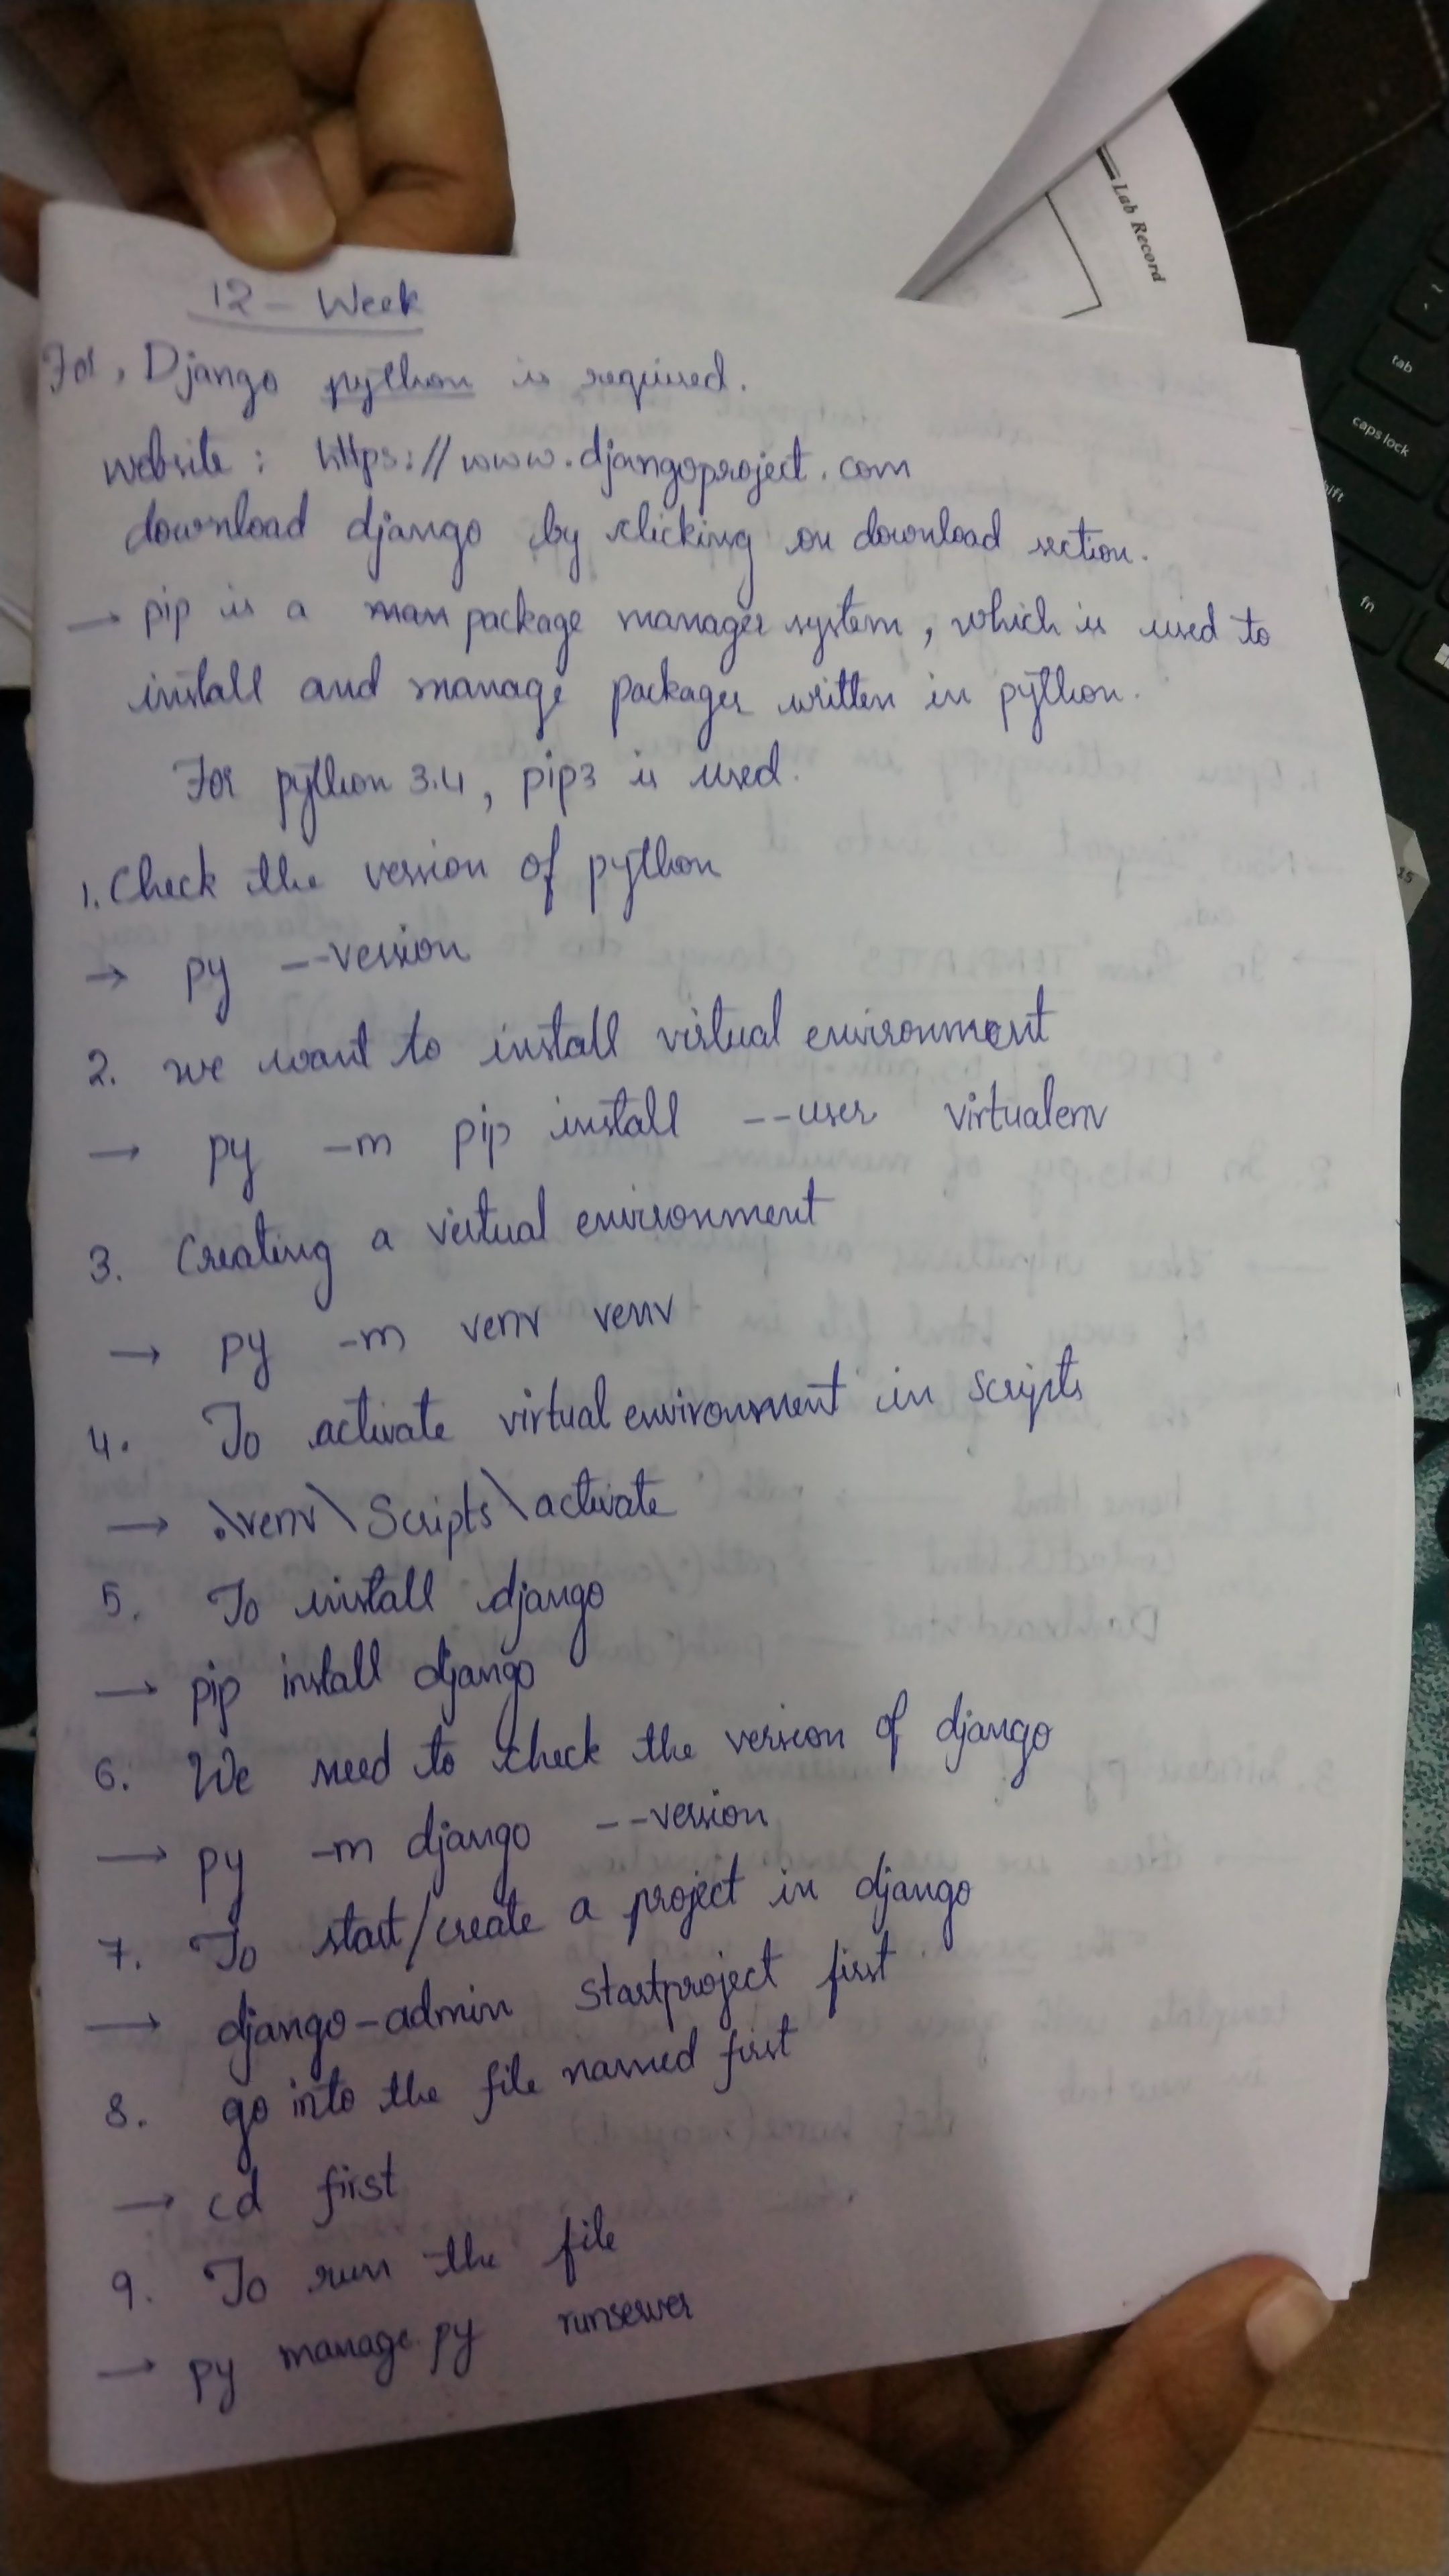 Lab Record
12 - Week
For, Django python is required.
website : https://www.djangoproject.com
download django by clicking on download section.
→ pip is a man package manager system, which is used to
install and manage packages written in python.
For python 3.4, pip3 is used.
1. Check the version of python
→ py --version
2. we want to install virtual environment
→ py -m pip install --user virtualenv
3. Creating a virtual environment
→ py -m venv venv
4. To activate virtual environment in scripts
→ .\venv\Scripts\activate
5. To install django
→ pip install django
6. We need to check the version of django
→ py -m django --version
7. To start/create a project in django
→ django-admin startproject first
8. go into the file named first
→ cd first
9. To run the file
→ py manage.py runserver
~
tab
caps lock
fn
15